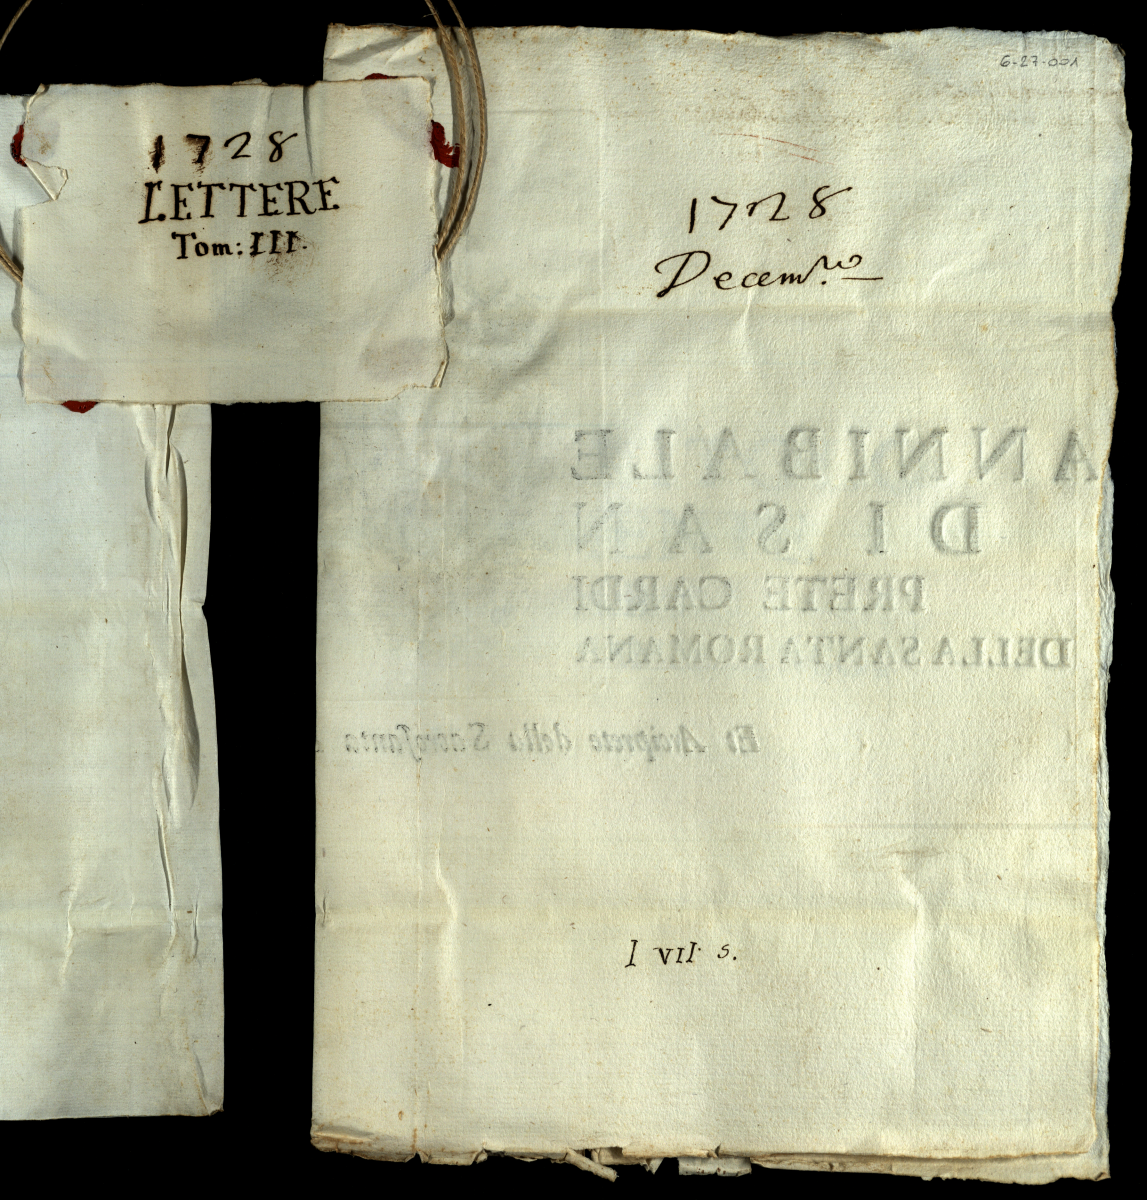 1728
LETTERE
Tom: III.
6-27-001
1728
Decem.re
ANNIBALE
DI SAN
PRETE CARDI
DELLA SANTA ROMANA
Et Arciprete della Sacrosanta
I VII s.